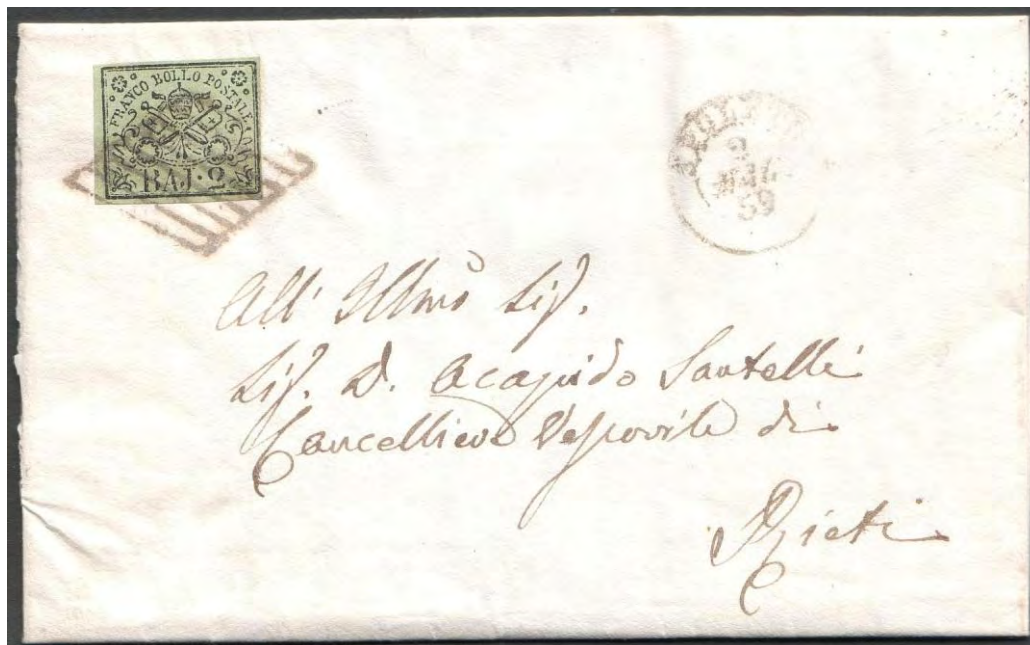 FRANCO BOLLO POSTALE
BAJ. 2
2
59
All' Illmo Sig.
Sig. D. Acapido Santelli
Cancelliere Vescovile di
Rieti